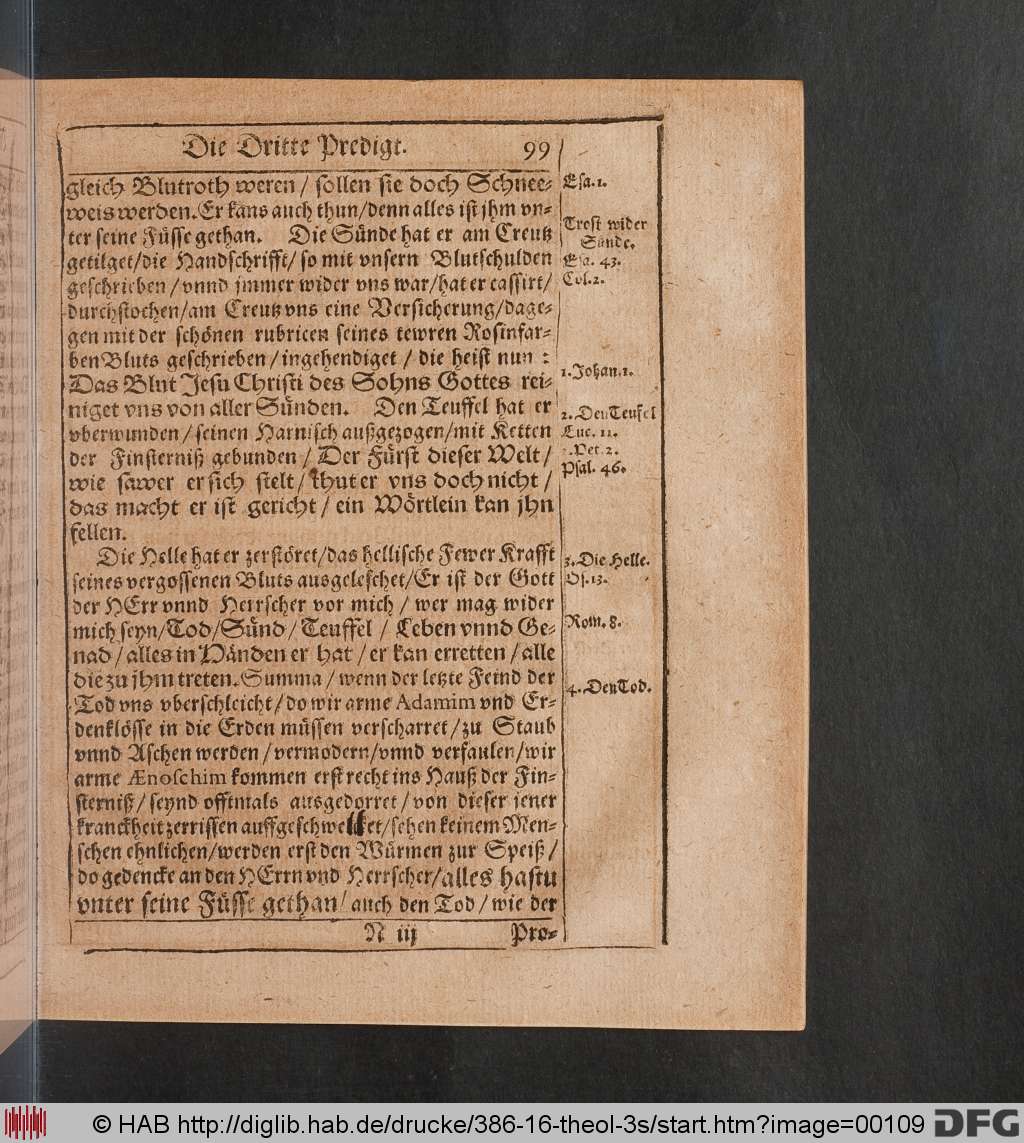 Die Dritte Predigt. 99
gleich Blutroth weren / sollen sie doch Schnee-
weis werden. Er kans auch thun/denn alles ist jhm vn-
ter seine Füsse gethan. Die Sünde hat er am Creutz
getilget/die Handschrifft/ so mit vnsern Blutschulden
geschrieben / vnnd jmmer wider vns war/hat er cassirt/
durchstochen/am Creutz vns eine Versicherung/dage-
gen mit der schönen rubricen seines tewren Rosinfar-
ben Bluts geschrieben / ingehendiget / die heist nun :
Das Blut Jesu Christi des Sohns Gottes rei-
niget vns von aller Sünden. Den Teuffel hat er
vberwunden / seinen Harnisch außgezogen/mit Ketten
der Finsterniß gebunden / Der Fürst dieser Welt /
wie sawer er sich stelt / thut er vns doch nicht /
das macht er ist gericht / ein Wörtlein kan jhn
fellen.
Die Helle hat er zerstöret/das hellische Fewer Krafft
seines vergossenen Bluts ausgeleschet/Er ist der Gott
der HErr vnnd Herrscher vor mich / wer mag wider
mich seyn/Tod/Sünd/Teuffel / Leben vnnd Ge-
nad / alles in Händen er hat / er kan erretten / alle
die zu jhm treten. Summa / wenn der letzte Feind der
Tod vns vberschleicht / do wir arme Adamim vnd Er-
denklösse in die Erden müssen verscharret / zu Staub
vnnd Aschen werden / vermodern/vnnd verfaulen/wir
arme Ænoschim kommen erst recht ins Hauß der Fin-
sterniß / seynd offtmals ausgedorret / von dieser jener
kranckheit zerrissen auffgeschwellet/sehen keinem Men-
schen ehnlichen/werden erst den Würmen zur Speiß /
do gedencke an den HErrn vnd Herrscher/alles hastu
vnter seine Füsse gethan/ auch den Tod / wie der
N iij Pro-
Esa. 1.
Trost wider
Sünde.
Esa. 43.
Col. 2.
1. Johan. 1.
2. Den Teufel
Luc. 11.
2. Pet. 2.
Psal. 46.
3. Die Helle.
Os. 13.
Rom. 8.
4. Den Tod.
© HAB http://diglib.hab.de/drucke/386-16-theol-3s/start.htm?image=00109 DFG